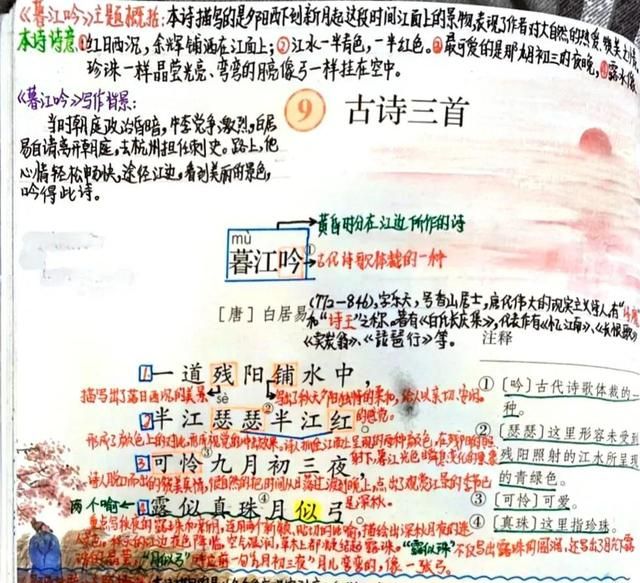 《暮江吟》主题概括：本诗描写的是夕阳西下到新月起这段时间江面上的景物，表现了作者对大自然的热爱、赞美之情。
本诗诗意：①红日西沉，余辉铺洒在江面上；②江水一半青色，一半红色。③最可爱的是那九月初三的夜晚，④露水像
珍珠一样晶莹光亮、弯弯的月亮像弓一样挂在空中。
《暮江吟》写作背景：
当时朝庭政治昏暗，牛李党争激烈，白居
易自请离开朝庭，去杭州担任刺史。路上，他
心情轻松畅快，途径江边，看到美丽的景色，
吟得此诗。
9 古诗三首
黄昏时分在江边所作的诗
mù
暮江吟①
古代诗歌体裁的一种
［唐］白居易
(772-846)，字乐天，号香山居士，唐代伟大的现实主义诗人，有"诗魔"
和"诗王"之称。著有《白氏长庆集》，代表作有《忆江南》、《长恨歌》
《卖炭翁》、《琵琶行》等。
注释
1一道残阳铺水中，
描写出了落日西沉的美景
写出了秋天夕阳独特的柔和，给人以亲切、安闲
的感觉。
sè
2半江瑟瑟②半江红。
形成了颜色上的对比，形成视觉的冲击效果。
3可怜③九月初三夜，
是深秋。
两个喻
4露似真珠④月似弓。
"露似珠"不仅写出露珠的圆润，还写出了月光下露
"月似弓"
月儿弯弯的，像一张弓。
①［吟］古代诗歌体裁的一
种。
②［瑟瑟］这里形容未受到
残阳照射的江水所呈现
的青绿色。
③［可怜］可爱。
④［真珠］这里指珍珠。